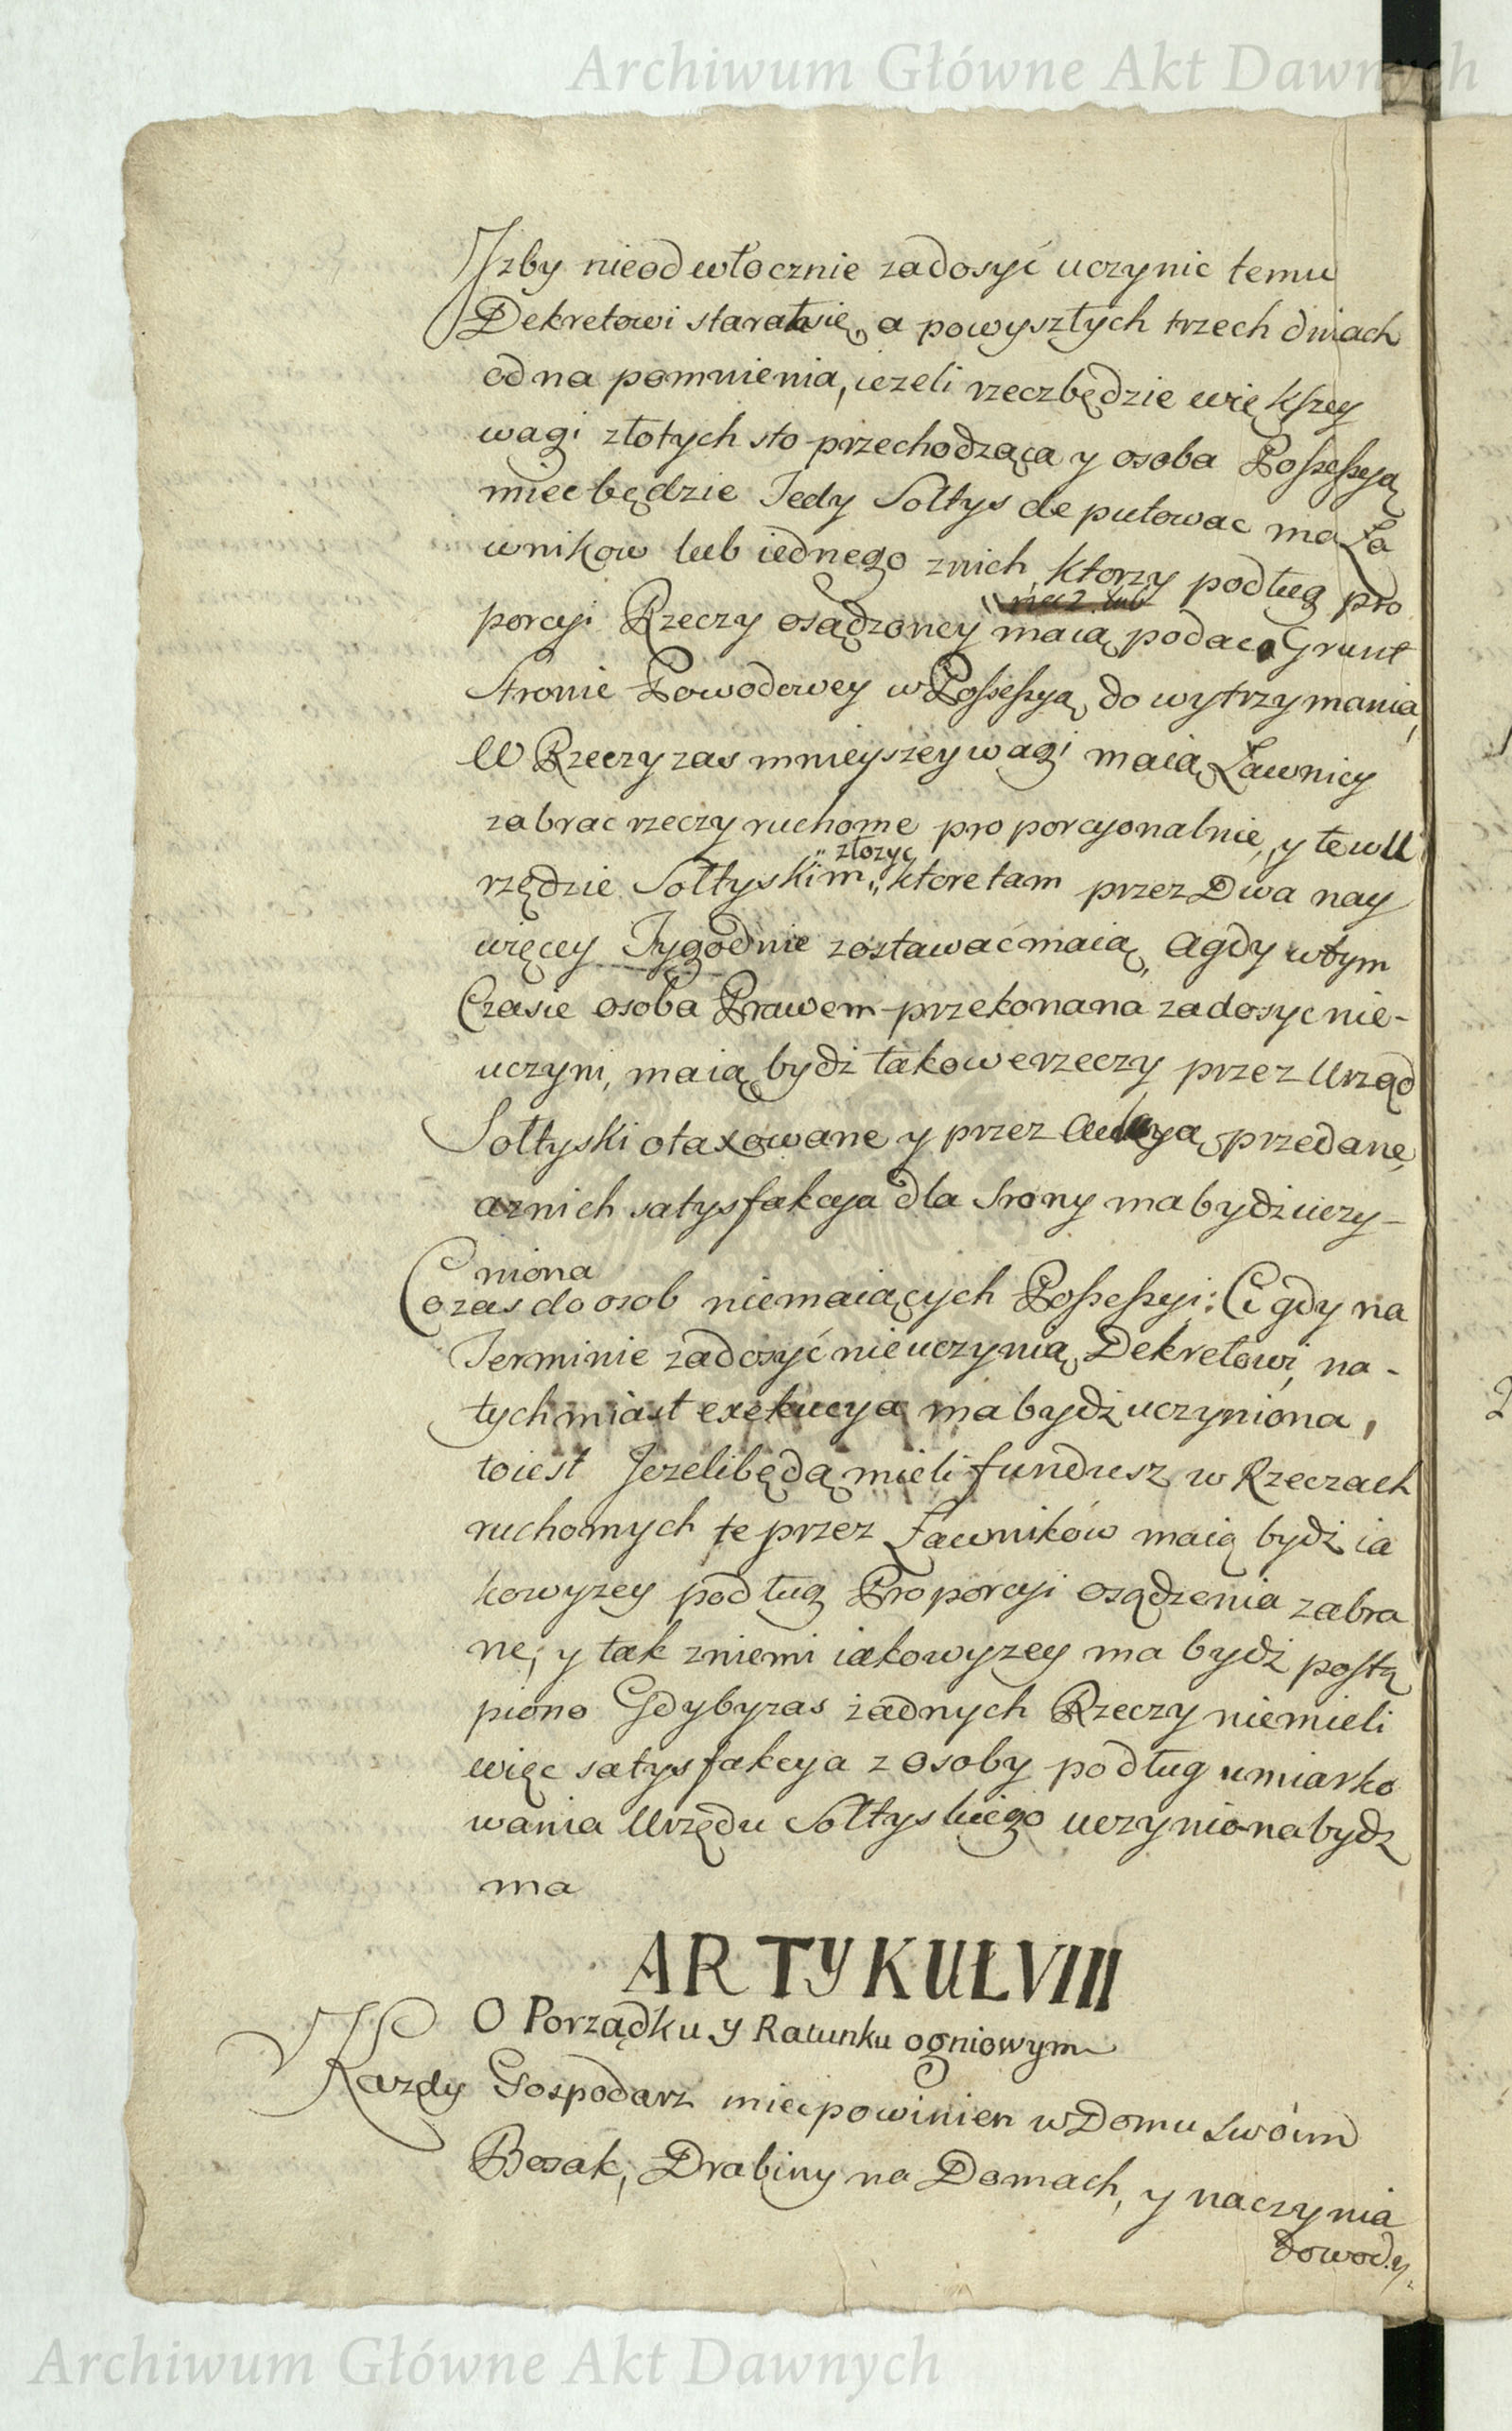 Archiwum Główne Akt Dawnych
Jzby nieodwłocznie zadosyć uczynic temu
Dekretowi starał się, a powyszłych trzech dniach
od na pomnienia, iezeli rzecz będzie więkſzey
wagi złotych sto przechodząca y osoba Poſseſsyą
miec będzie Tedy Soltys deputowac ma Ła
wnikow lub iednego znich, ktorzy podług pro
porcyi Rzeczy osądzoney maią podac Grunt
Stronie Powodowey w Poſseſsyą do wytrzymania,
W Rzeczy zas mnieyszey wagi maią Ławnicy
zabrac rzeczy ruchome proporcyonalnie, y te w U
złozyc
rzędzie Sołtyskim, ktore tam przez Dwa nay
więcey Tygodnie zostawać maią, a gdy wtym
Czasie osoba Prawem przekonana zadosyc nie-
uczyni, maią bydź takowe rzeczy przez Urząd
Sołtyski otaxowane y przez przedane,
a znich satysfakcya dla Srony ma bydź uczy-
niona
Co zas do osob niemaiących Poſseſsyi: Ci gdy na
Terminie zadosyć nie uczynią Dekretowi, na-
tychmiast exekucya ma bydź uczyniona,
toiest Jezeli będą mieli fundusz w Rzeczach
ruchomych te przez Ławników maią bydź ia
kowyzey podług Proporcyi osądzenia zabra
ne, y tak zniemi iakowyzey ma bydź poſtą
piono Gdyby zas żadnych Rzeczy niemieli
więc satysfakcya z osoby podług umiarko
wania Urzędu Sołtyskiego uczyniona bydz
ma
ARTYKUŁ VIII
O Porządku y Ratunku ogniowym
Kazdy Gospodarz miec powinien w Domu swóim
Bosak, Drabiny na Domach, y naczynia
dowody
Archiwum Główne Akt Dawnych